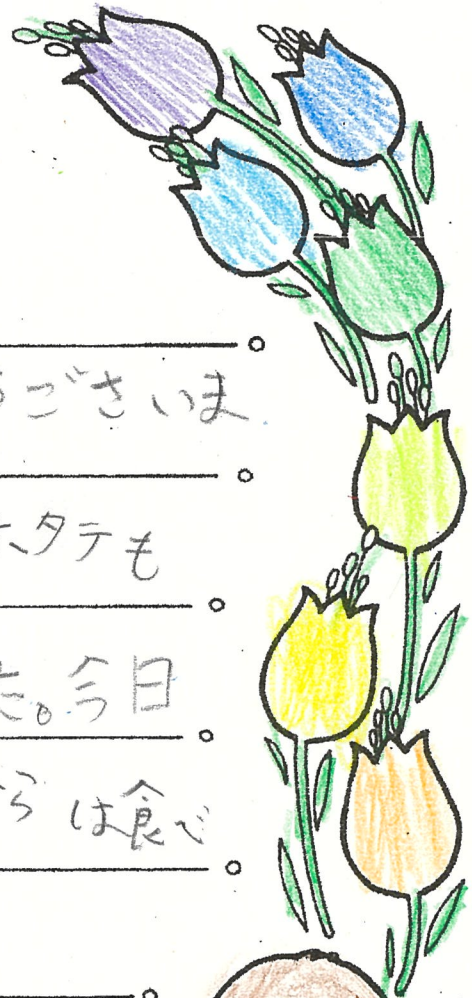 ございま
タテも
。今日
らは食べ